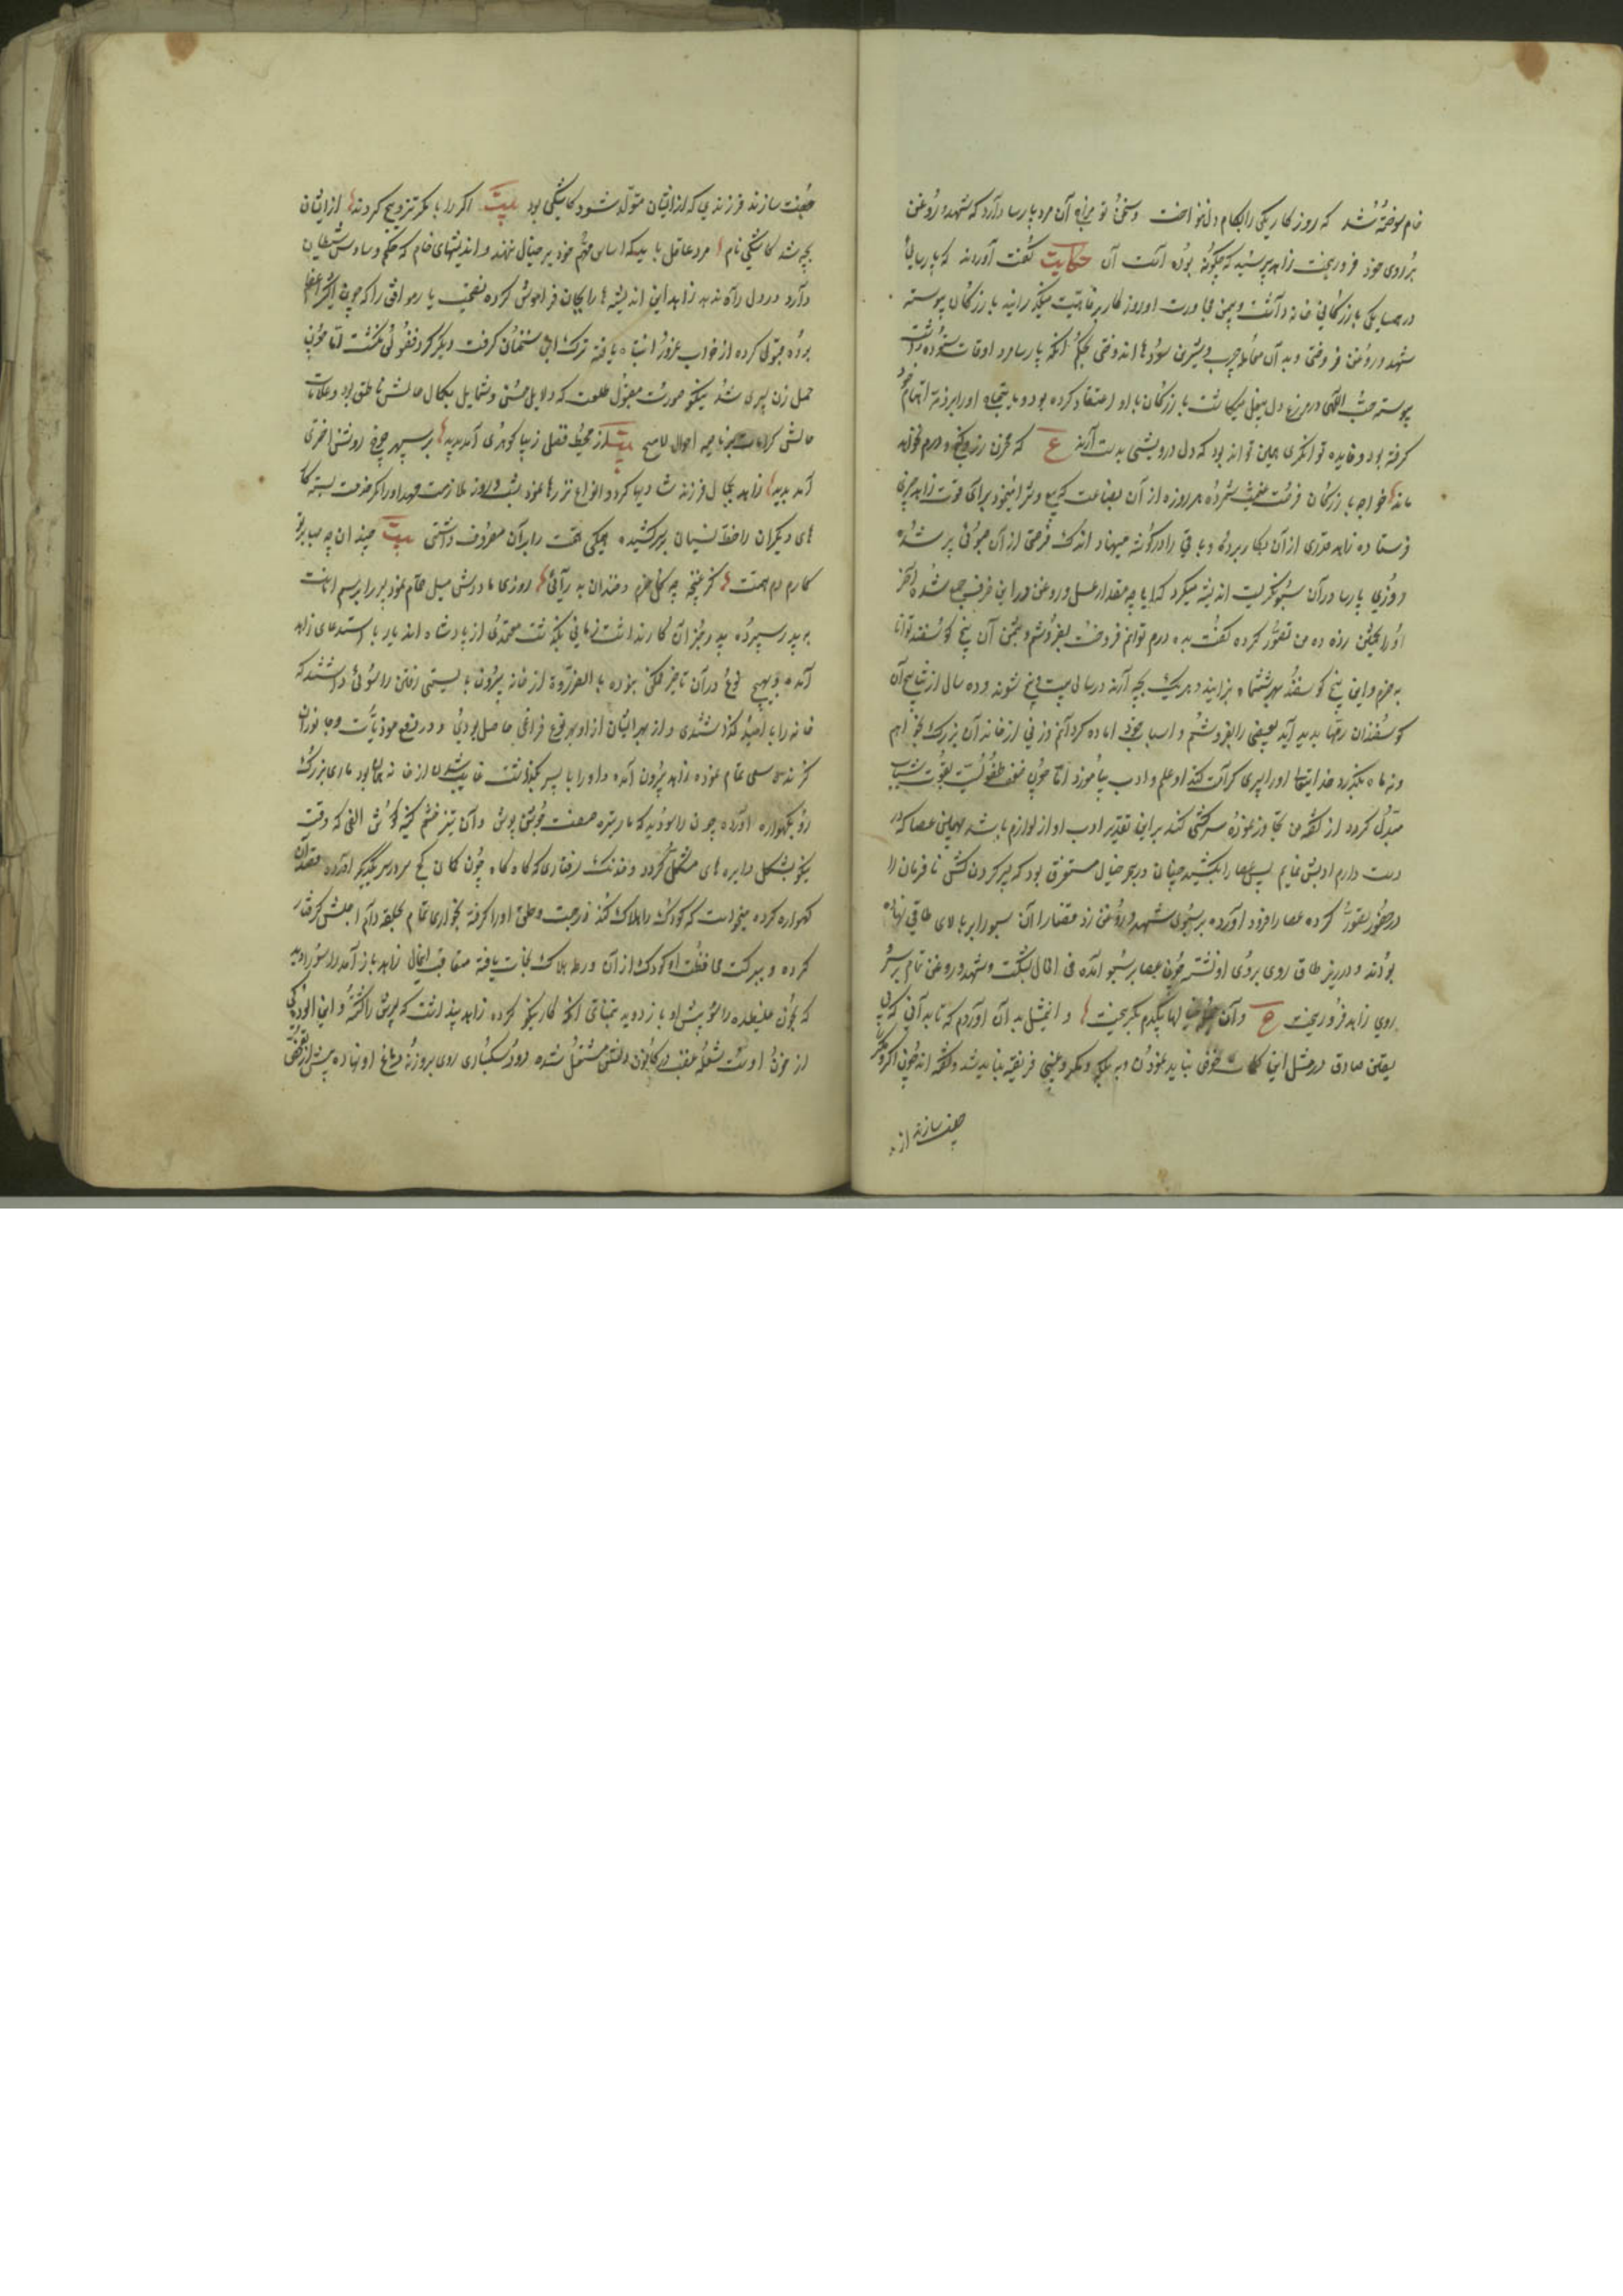 خام سوخته شد که روزگار یکی را بکام دل نواخت وسخن تو آن مرد پارسا دارد که شهد و روغن
بر روی خود فرو ریخت زاهد پرسید که چگونه بوده است آن حکایت گفت آورده‌اند که پارسائی
در همسایگی بازرگانی خانه داشت و بیمن مجاورت او روزگار برفاهیت میگذرانید بازرگان پیوسته
شهد و روغن فروختی و بدان معامله چرب و شیرین سودها اندوختی بحکم آنکه پارسا مرد اوقات ستوده داشت
پیوسته حب الهی در مزرع دل میکاشت بازرگان با او اعتقاد کرده بود و مایحتاج او را بر ذمه اهتمام خود
گرفته بود و فایده توانگری همین تواند بود که دل درویشی بدست آرند ع که مخزن زر و گنج و درم نخواهد
ماند خواجه بازرگان فرصت غنیمت شمرده هر روزه از آن بضاعت که بیع و شرا مینمود برای قوت زاهد چیزی
فرستاده زاهد قدری از آن بکار برده و باقی را در گوشه مینهاد اندک فرصتی از آن سبوئی پر شد
روزی پارسا در آن سبو نگریست اندیشه میکرد که آیا چه مقدار عسل و روغن در این ظرف جمع شده آخر
او را بتخمین ده من تصور کرده گفت بده درم توانم فروخت بفروشم و بثمن آن پنج گوسفند توانا
بخرم و این پنج گوسفند بهر ششماه بزایند و هر یک بچه آرند در سالی بیست و پنج شوند و ده سال از نتایج آن
گوسفندان رمها پدید آید بعضی را بفروشم و اسباب خود آماده گردانم و زنی از خاندان بزرگ بخواهم
و نه ماه بگذرد خدایتعالی او را پسری کرامت کند او علم و ادب بیاموزد اما چون ضعف طفولیت بقوت شباب
مبدل گردد از گفته من تجاوز نموده سرکشی کند بر این تقدیر ادب او از لوازم باشد بهمین عصا که در
دست دارم ادبش نمایم پس عصا را بکشید چنان در بحر خیال مستغرق بود که سر و گردن کش نافرمان را
در حضور تصور کرده عصا را فرود آورده بر سبوی شهد و روغن زد قضا را آن سبو را بر بالای طاقی نهاده
بودند و در زیر طاق روی بروی او نشسته چون عصا بر سبو آمده فی الحال بشکست و شهد و روغن تمام بر سر
روی زاهد فرو ریخت ع وآن خیالها بیکدم بگریخت و این مثل بدان آوردم که تا بدانی که بی
یقین صادق در مثل این کلمات خوض نباید نمودن و به بلکه و مگر و عیسی فریفته نباید شد و گفته‌اند چون اگر و مگر
جفت سازند از
جفت سازند فرزندی که از ایشان متولد شود کاشکی بود بیت اگر را با مگر تزویج کردند از ایشان
بچه شد کاشکی نام مرد عاقل باید که اساس مهم خود بر خیال ننهد و اندیشهای خام که حکم وساوس شیطان
دارد در دل راه ندهد زاهد این اندیشه‌ها را بکان فراموش کرده
از خواب غرور انتباه یافته ترک این سخنان گرفت و دیگر گرد فضولی نگشت اما چون
حمل زن سپری شد نیکو صورت مقبول طلعت که دلایل حسن و شمایل بکمال حالش ناطق بود و علامات
بیت از محیط فضل زیبا گوهری آمد پدید بر سپهر چرخ روشن اختری
آمد پدید زاهد بجمال فرزند شادیها کرد و انواع نذرها نمود شب و روز ملازمت مهد او را کمر خدمت بسته کار
های دیگران را خط نسیان برکشیده همگی همت را بر آن معروف داشتی بیت چند آن چه صبا بر تو
گمارم دم همت کز غنچه چو گل خرم و خندان بدر آئی روزی مادرش میل حمام نمود پسر را برسم امانت
به پدر سپرده پدر بجز آن کار نداشت زمانی بگذشت معتمدی از پادشاه آمد با استدعای زاهد
آمد و بهیچ نوع در آن تاخیر ممکن نبوده بالضروره از خانه بیرون بایستی رفتن راسوئی داشتند که
خانه را با امید گذاشتندی و از بهر ایشان از او بهر نوع فراغی حاصل بودی و در دفع موذیات و جانوران
گزنده سعی تمام نموده زاهد بیرون آمده و او را با پسر بگذاشت غایب شدن از خانه همان بود ماری بزرگ
رو بگهواره آورده چون راسو دید که مار تیره صفت جوشن پوش و آن تیز خشم کینه‌کش الفی که وقت
سکون بشکل دایره‌های مشکل گردد و خدنک رفتاری که گاه گاه چون کمان کج سر در سر یکدیگر آورده قصد آن
گهواره کرده میخواست که کودک را هلاک کند درجست و حلق او را گرفته بخواری تمام بحلقه دام اجلش گرفتار
کرده و ببرکت محافظت او کودک از آن ورطه هلاک نجات یافته متعاقب اینحال زاهد باز آمد راسو را دید
که بخون غلطیده راسو پیش او باز دوید بتمنای آنکه کار نیکو کرده زاهد پنداشت که پسرش را کشته و این آلودگی
از خون اوست شعله غضب در کانون دلش مشتعل شده دود سبکباری روی بروزنه دماغ او نهاده پیش از تفحص